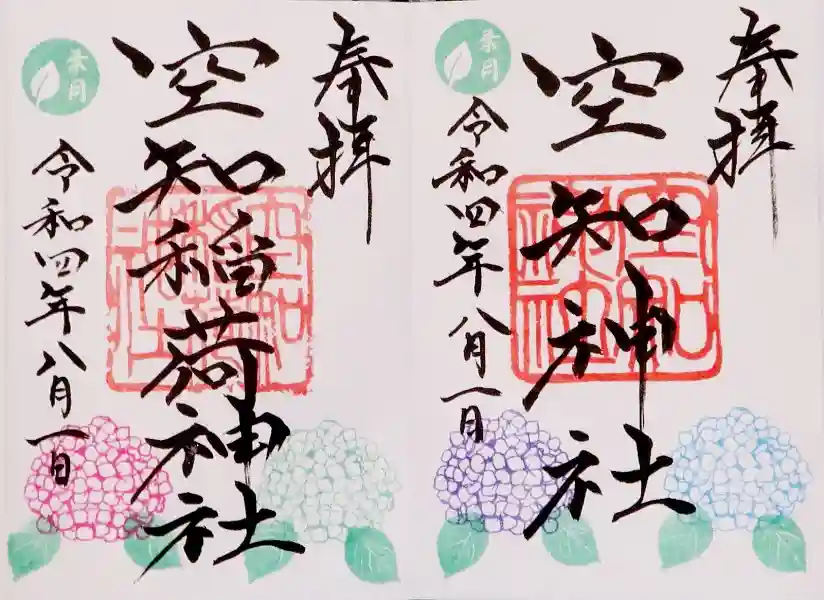 奉拝
空知神社
令和四年八月一日
葉月
奉拝
空知稲荷神社
令和四年八月一日
葉月